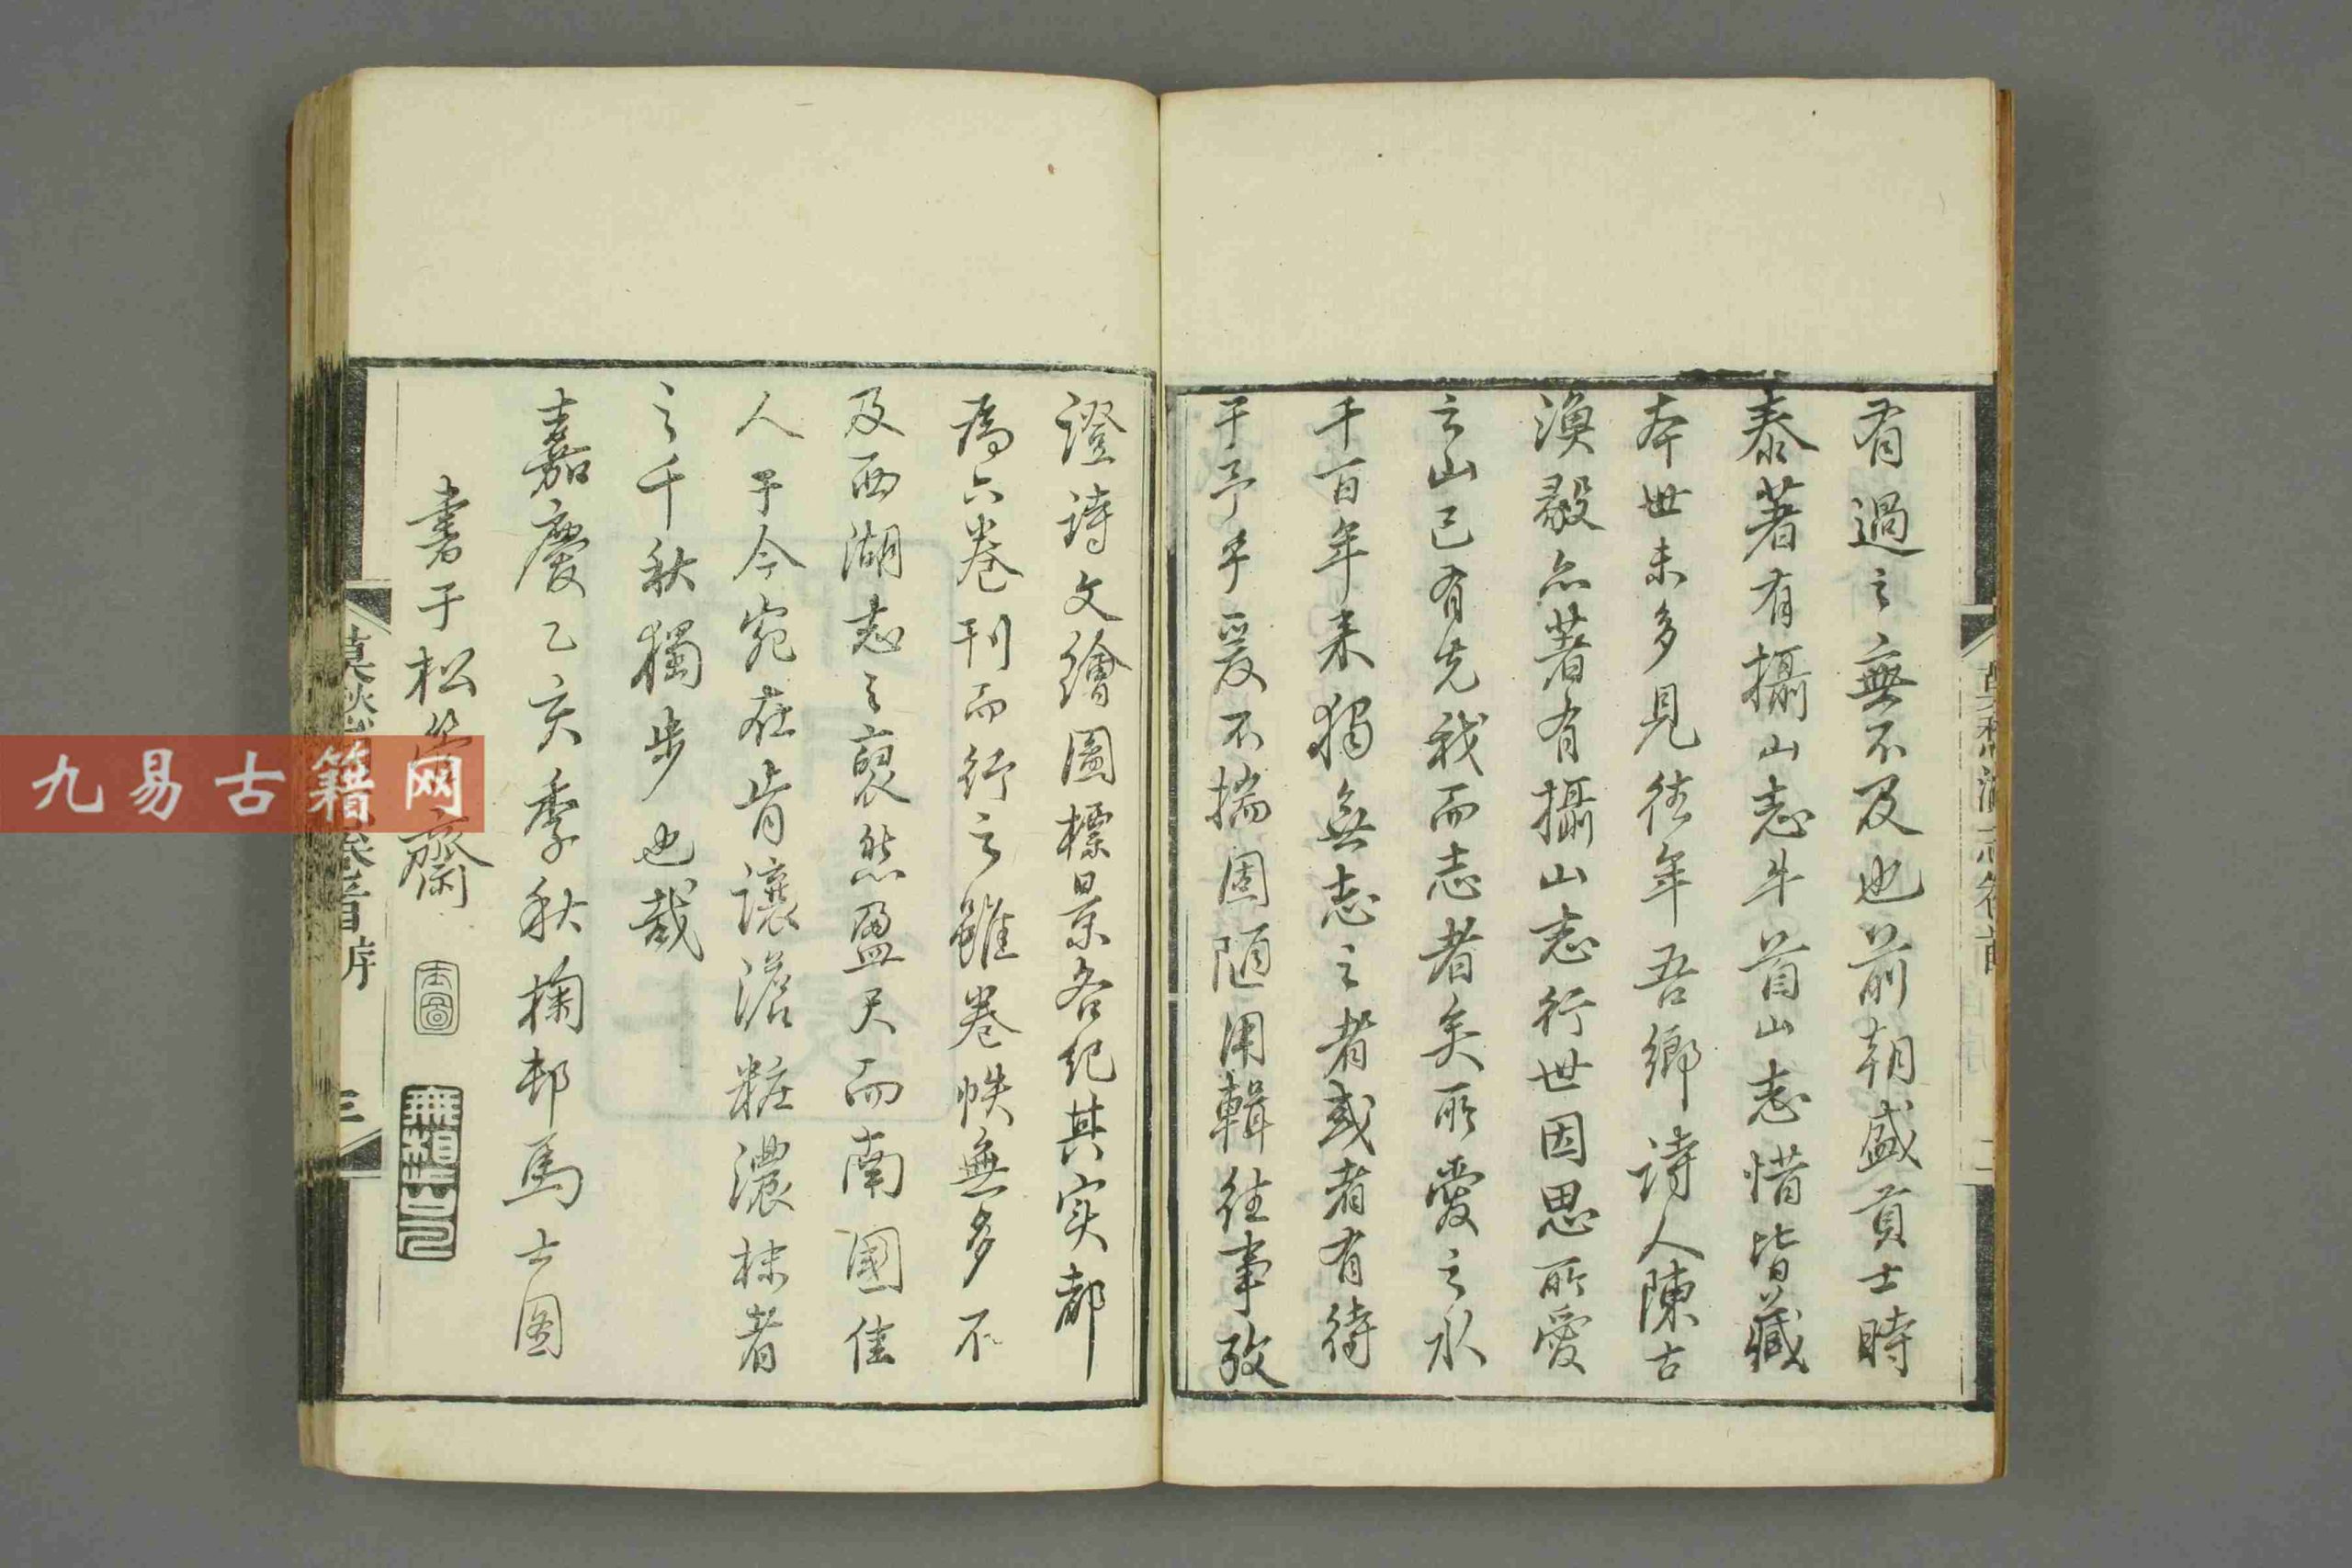 有過之無不及也前朝盛貢士時
泰著有攝山志牛首山志惜皆藏
本世未多見往年吾鄉詩人陳古
漁毅亦著有攝山志行世因思所愛
之山已有先我而志者矣所愛之水
千百年来獨無志之者或者有待
于予乎爰不揣固陋用輯往事攷
證詩文繪圖標景各紀其实都
為六卷刊而行之雖卷帙無多不
及西湖志之裒然盈尺而南國佳
人于今宛在肯讓澹粧濃抹者
之千秋獨步也哉
嘉慶乙亥季秋掬邨馬士图
書于松筠齋
士圖
莫愁湖志卷首
二
序
三
九易古籍网